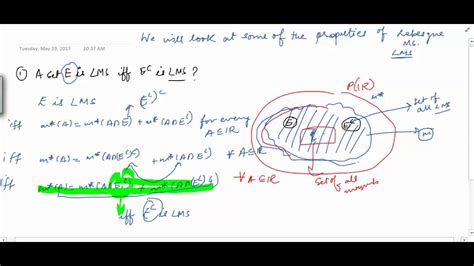 Tuesday, May 23, 2017 10:37 AM
We will look at some of the properties of Lebesgue
LMS
① A set E is LMS iff Eᶜ is LMS ?
E is LMS (Eᶜ)ᶜ
iff m*(A) = m*(A∩E) + m*(A∩Eᶜ) for every A⊆ℝ
iff m*(A) = m*(A∩(Eᶜ)ᶜ) + m*(A∩Eᶜ) ∀ A⊆ℝ
iff m*(A) = m*(A∩Eᶜ) + m*(A∩(Eᶜ)ᶜ) ∀ A⊆ℝ
iff Eᶜ is LMS
P(ℝ)
m*
Set of all LMS
E
Eᶜ
m
Set of all